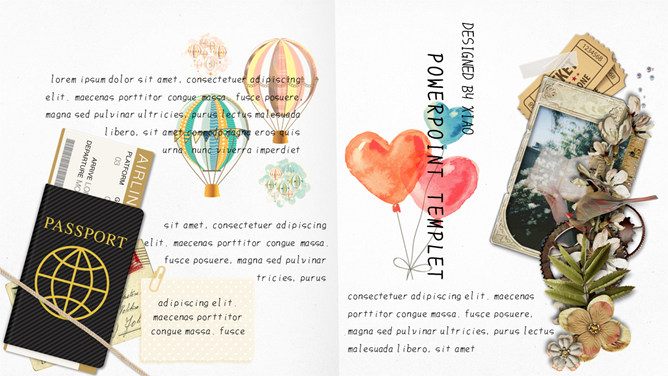 lorem ipsum dolor sit amet, consectetuer adipiscing
elit. maecenas porttitor congue massa. fusce posuere,
magna sed pulvinar ultricies, purus lectus malesuada
libero, sit amet commodo magna eros quis
urna. nunc viverra imperdiet
AIRLIN
PLATFORM
03
ARRIVE LO
DEPARTURE MO
PASSPORT
sit amet, consectetuer adipiscing
elit. maecenas porttitor congue massa.
fusce posuere, magna sed pulvinar
tricies, purus
adipiscing elit.
maecenas porttitor
congue massa. fusce
DESIGNED BY XIAO
POWERPOINT TEMPLET
1234568
consectetuer adipiscing elit. maecenas
porttitor congue massa. fusce posuere,
magna sed pulvinar ultricies, purus lectus
malesuada libero, sit amet